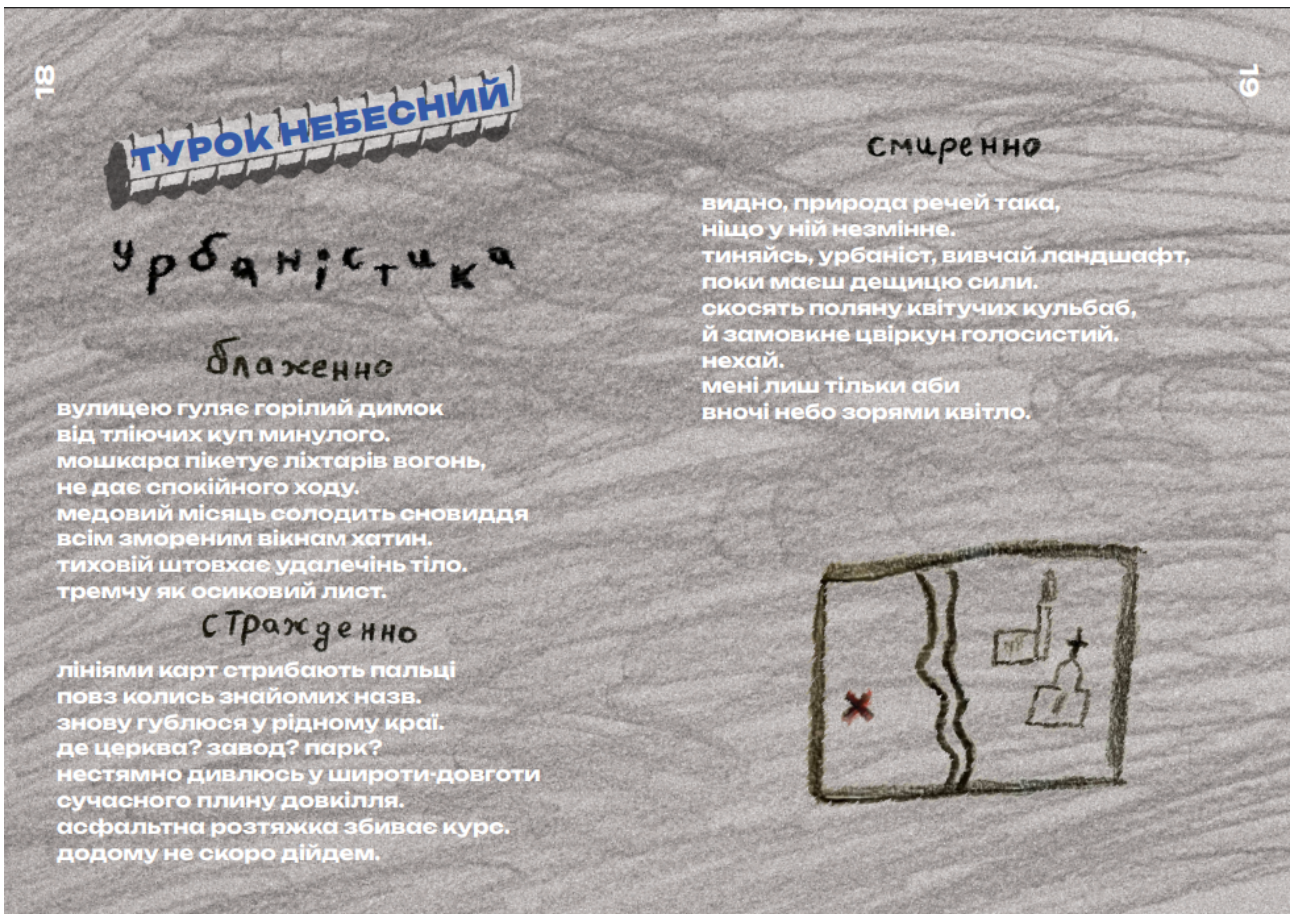 18
ТУРОК НЕБЕСНИЙ
урбаністика
блаженно
вулицею гуляє горілий димок
від тліючих куп минулого.
мошкара пікетує ліхтарів вогонь,
не дає спокійного ходу.
медовий місяць солодить сновиддя
всім змореним вікнам хатин.
тиховій штовхає удалечінь тіло.
тремчу як осиковий лист.
стражденно
лініями карт стрибають пальці
повз колись знайомих назв.
знову гублюся у рідному краї.
де церква? завод? парк?
нестямно дивлюсь у широти-довготи
сучасного плину довкілля.
асфальтна розтяжка збиває курс.
додому не скоро дійдем.
19
смиренно
видно, природа речей така,
ніщо у ній незмінне.
тиняйсь, урбаніст, вивчай ландшафт,
поки маєш дещицю сили.
скосять поляну квітучих кульбаб,
й замовкне цвіркун голосистий.
нехай.
мені лиш тільки аби
вночі небо зорями квітло.